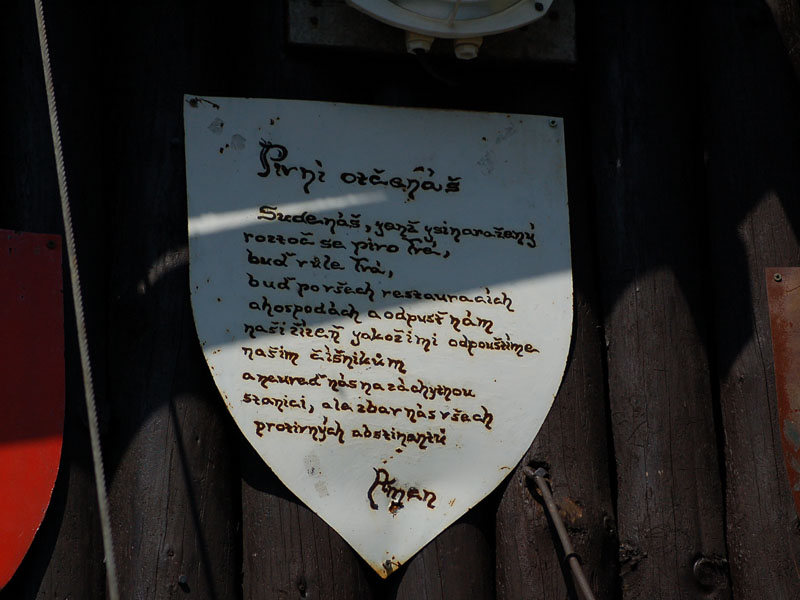 Pivní otčenáš
Sude náš, jenž jsi naražený
roztoč se pivo Tvé,
buď vůle Tvá,
buď po všech restauracích
a hospodách a odpusť nám
naši žízeň jakož i my odpouštíme
našim číšníkům
a neuveď nás na záchytnou
stanici, ale zbav nás všech
protivných abstinentů
Amen